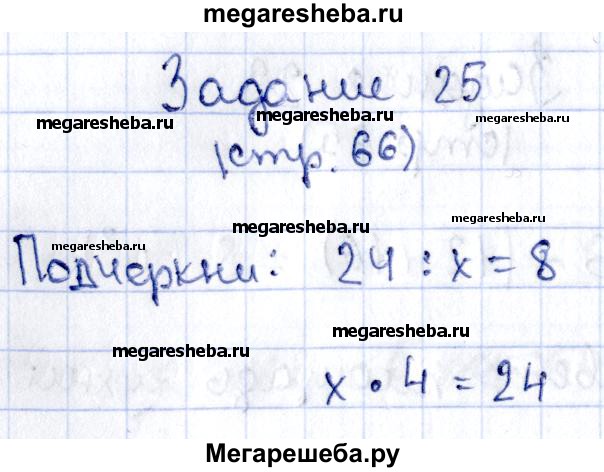 megaresheba.ru
Задание 25
megaresheba.ru
megaresheba.ru
(стр. 66)
megaresheba.ru
megaresheba.ru
megaresheba.ru
Подчеркни: 24 : x = 8
megaresheba.ru
megaresheba.ru
x • 4 = 24
Мегарешеба.ру